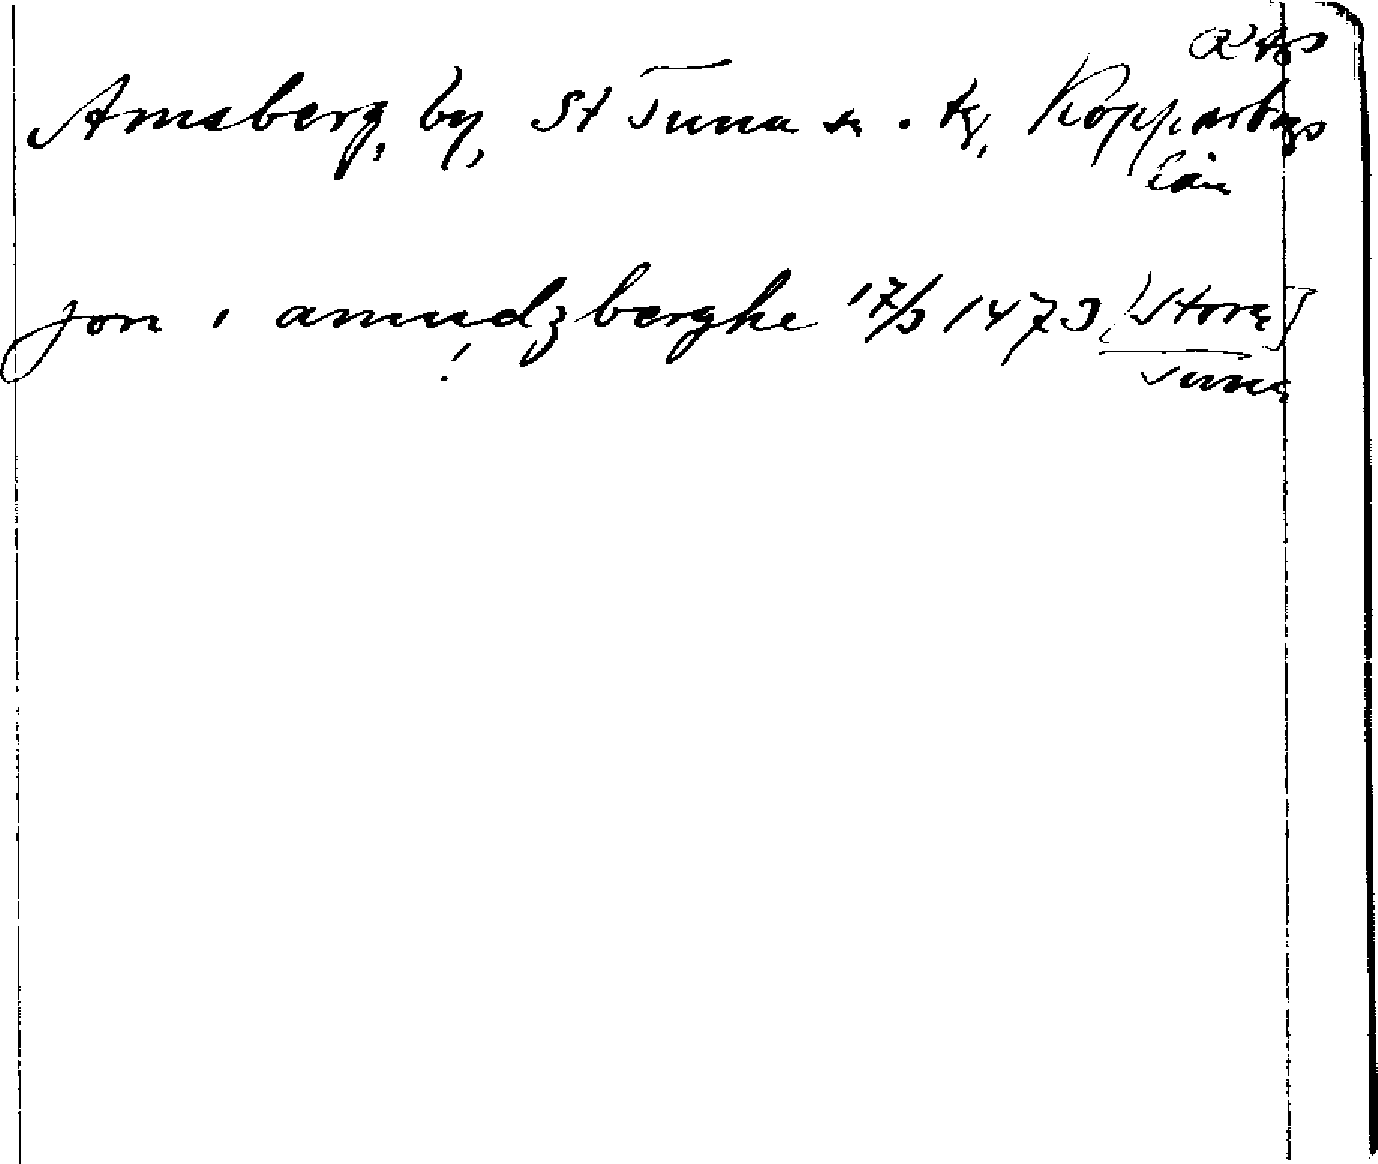 Amsberg, by, St Tuna sn. tg, Kopparbergs
län
jon i amudzberghe 17/3 1473 [Stora]
Tuna